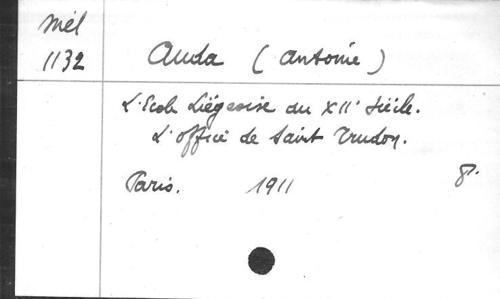 Mél
1132
Auda (Antoine)
L'Ecole Liégeoise au XIIe siècle.
L'office de Saint Trudon.
Paris. 1911 8°.